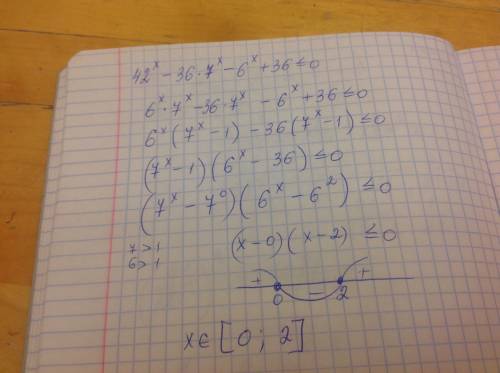 42ˣ - 36·7ˣ - 6ˣ + 36 ≤ 0
6ˣ·7ˣ - 36·7ˣ - 6ˣ + 36 ≤ 0
6ˣ(7ˣ - 1) - 36(7ˣ - 1) ≤ 0
(7ˣ - 1)(6ˣ - 36) ≤ 0
(7ˣ - 7⁰)(6ˣ - 6²) ≤ 0
7 > 1
6 > 1
(x - 0)(x - 2) ≤ 0
+ - +
0 2
x ∈ [0; 2]